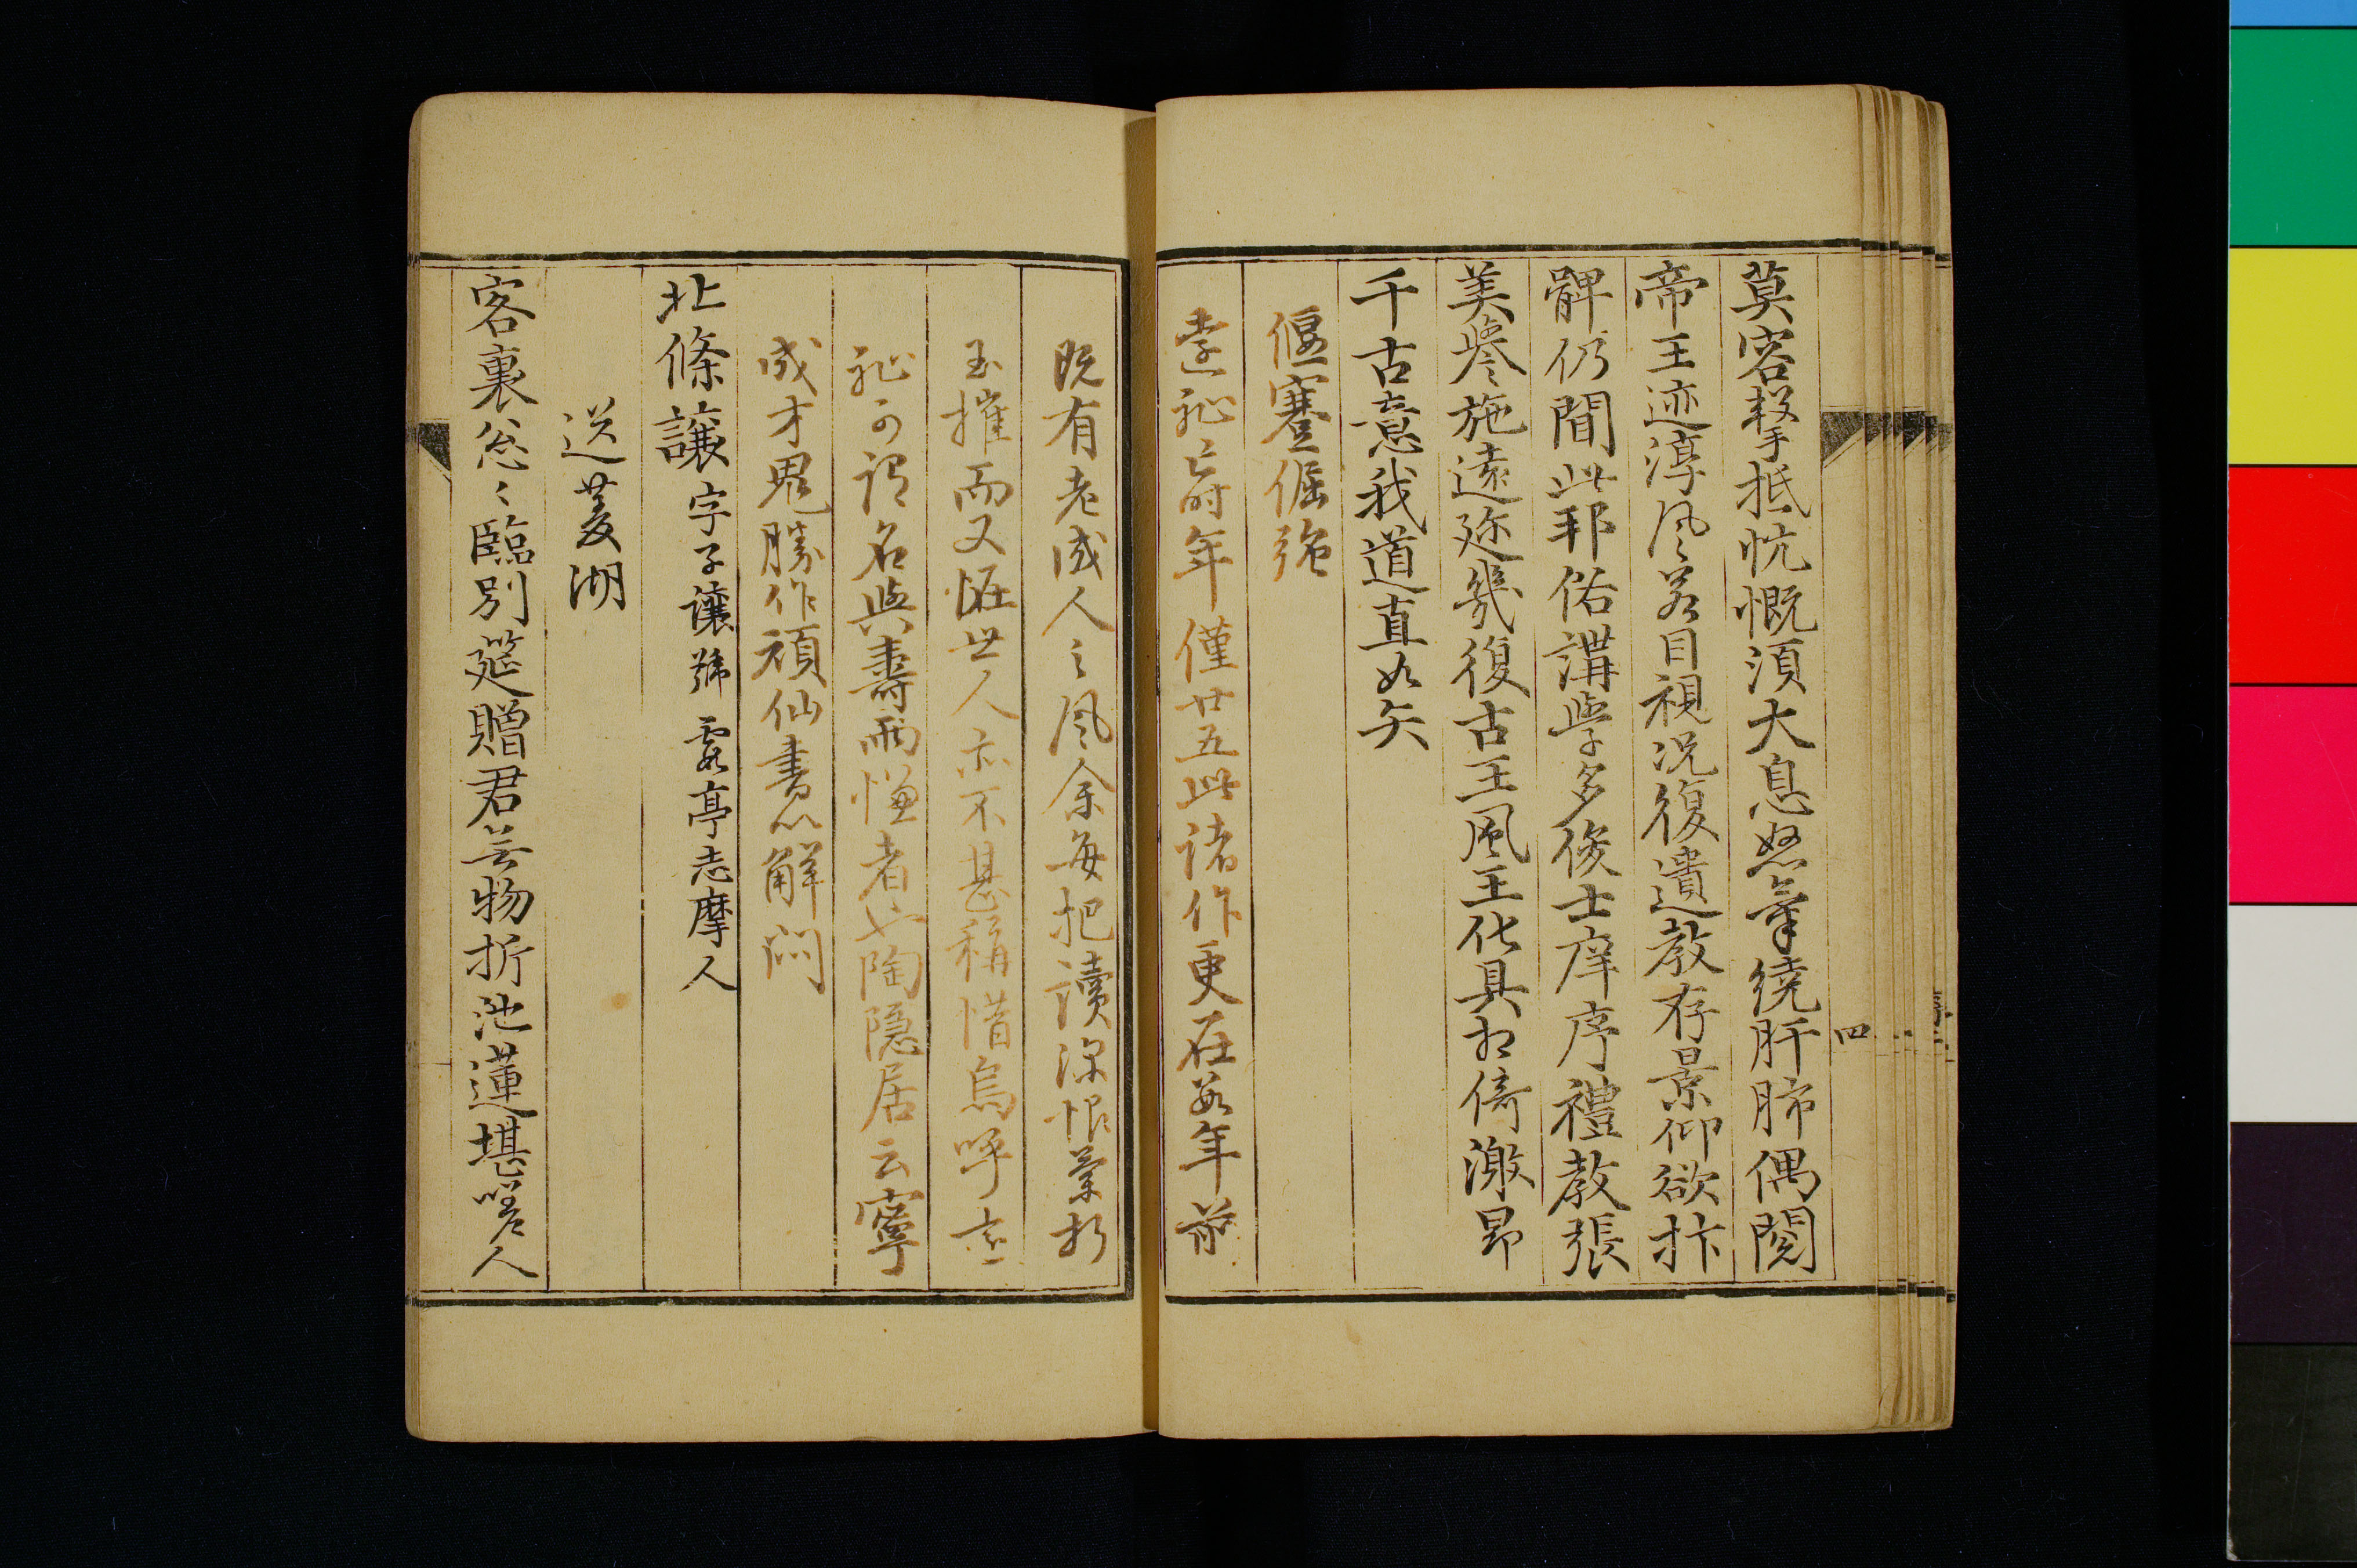 莫容擊抵忼慨湏大息怒氣繞肝肺偶閲
帝王迹淳風若目視况復遺教存景仰欲抃
髀仍聞此邦佑講學多俊士庠序禮教張
美譽施遠迩幾復古王風王化具相倚激昻
千古意我道直如矢
偃蹇倔強
孝祉亡時年僅廿五此諸作更在數年前
既有老成人之風余每把讀深恨蘭折
玉摧而又恠世人亦不甚稱惜烏呼孝
祉可謂名與壽兩慳者也陶隠居云寧
成才鬼勝作頑仙書以觧悶
北條讓字子讓號霞亭志摩人
送菱湖
客裏怱〻臨別筵贈君芸物折池蓮堪嗟人
四